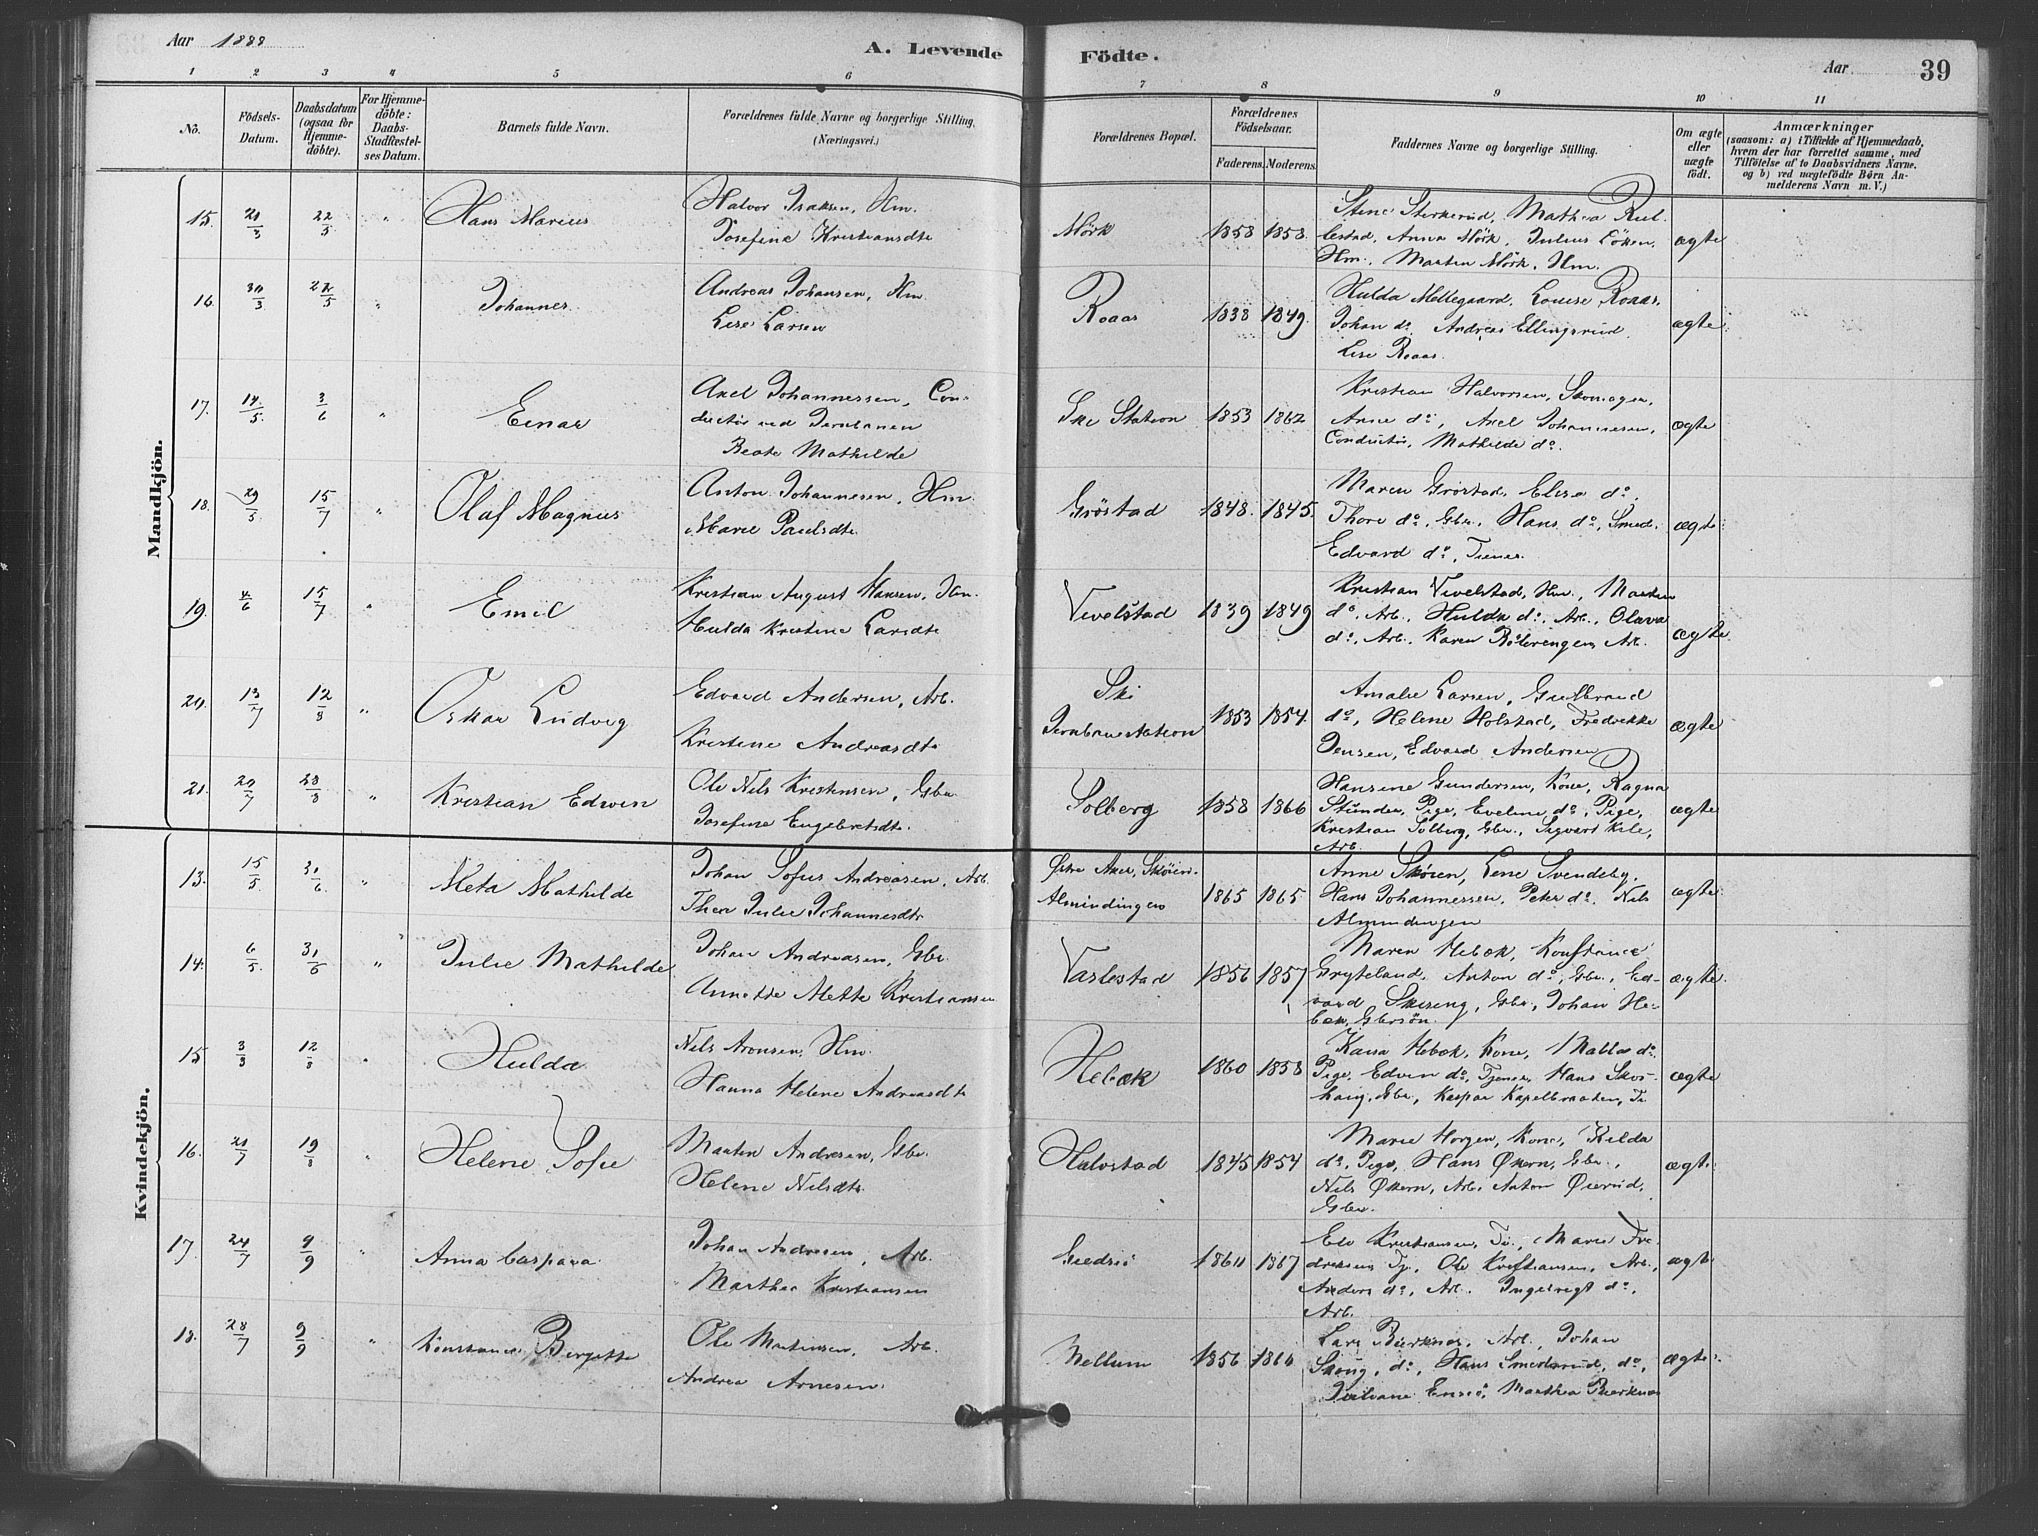 Aar 1888
A. Levende Födte.
Aar
39
1 2 3 4 5 6 7 8 9 10 11
No.
Födsels-Datum.
Daabsdatum (ogsaa for Hjemme-döbte).
For Hjemme-döbte: Daabs-Stadfæstel-ses Datum.
Barnets fulde Navn.
Forældrenes fulde Navne og borgerlige Stilling. (Næringsvei.)
Forældrenes Bopæl.
Forældrenes Födselsaar.
Faderens. Moderens.
Faddernes Navne og borgerlige Stilling.
Om ægte eller uægte födt.
Anmærkninger
(saasom: a) i Tilfælde af Hjemmedaab, hvem der har forrettet samme, med Tilföielse af to Daabsvidners Navne, og b) ved uægtefödte Børn An-melderens Navn m. V.)
Mandkjön.
15. 21/3 22/5 " Hans Marius
Halvor Isaksen, Hm.
Josefine Kristiansdtr
Mörk 1858 1858.
Stine Sterkerud, Mathea Rul-
lestad, Anna Mörk, Julius Löken,
Hm., Martin Mörk, Hm.
ægte
16. 30/3 22/5 " Johannes
Andreas Johansen, Hm.
Lise Larsen
Roaas 1838 1849.
Hulda Mellegaard, Louise Roaas,
Johan do Andreas Ellingsrud
Lise Roaas.
ægte
17. 14/5 3/6 " Einar
Axel Johannessen, Con-
ductör ved Jernbanen
Beate Mathilde
Ski Station 1853 1862
Kristian Halvorsen, Skomager,
Anne do, Axel Johannesen,
Conductör, Mathilde do.
ægte
18. 29/5 15/7 " Olaf Magnus
Anton Johannesen, Hm.
Marie Paulsdtr.
Gröstad 1848. 1845.
Maren Gröstad, Elise do,
Thore do, Gbr. Hans do, Smed.
Edvard do, Tiener.
ægte
19. 4/6 15/7 " Emil
Kristian August Hansen, Hm.
Hulda Kristine Larsdtr
Vevelstad 1839 1849
Kristian Vevelstad, Hm., Martin
do, Arb., Hulda do, Arb., Olava
do, Arb. Karen Rölerengen, Arb.
ægte
20. 13/7 12/8 " Oskar Ludvig
Edvard Andersen, Arb.
Kristine Andreasdtr
Ski
Jernbanestation 1853 1854.
Amalie Larsen, Gulbrand
do, Helene Holstad, Fredrikke
Jensen, Edvard Andersen
ægte
21. 20/7 28/8 " Kristian Edwin
Ole Nils Kristensen, Gbr
Josefine Engebretsdtr.
Solberg 1858 1866
Hansine Gundersen, Kone, Ragna
Stunder, Pige, Eveline do, Pige,
Kristian Solberg, Gbr., Sigvart Kile,
Arb.
ægte
Kvindekjön.
13. 15/5 31/6 " Meta Mathilde
Johan Sofus Andreasen, Arb.
Thea Julie Johannesdtr
Østre Aker, Sköien-
Almindingen 1865 1865
Anne Sköien, Lene Svendsby,
Hans Johannessen, Peter do, Nils
Almindingen
ægte
14. 6/5. 31/6 " Julie Mathilde
Johan Andreasen, Gbr.
Annette Mette Kristiansen
Varlestad 1856 1857
Maren Hebæk, Konstance
Gryteland, Anton do, Gbr., Ed-
vard Skireng, Gbr., Johan He-
bæk, Gbrsön.
ægte.
15 3/3 12/8 " Hulda
Nils Aronsen, Hm.
Hanna Helene Andreasdtr
Hebæk 1860 1858
Kaisa Hebæk, Kone, Mathea do,
Pige, Edvin do, Tjener, Hans Skos-
haug, Gbr., Kaspar Kapelbraaten, Tr
ægte
16. 21/7 19/8 " Helene Sofie
Martin Andresen, Gbr.
Helene Nilsdtr
Halvstad 1845 1854
Marie Horgen, Kone, Hilda
do, Pige, Hans Økern, Gbr.,
Nils Økern, Arb. Anton Øierud,
Gbr.
ægte
17. 24/7 9/9 " Anna Caspara
Johan Andresen, Arb.
Marthea Kristiansen
1864 1867
Kristiansen, Tj., Marie Fre-
driksen Tj., Ole Kristiansen, Arb.,
Anders do, Arb. Ingebregt do,
Arb.
ægte
18. 28/7 9/9 " Konstance Bergette
Ole Martinsen, Arb.
Andrea Arnesen.
Mellum 1856 1864
Lars Bierknes, Arb. Johan
Skoug, do, Hans Smedsrud, do,
Juliane Ensiö, Marthea Bierknes
ægte